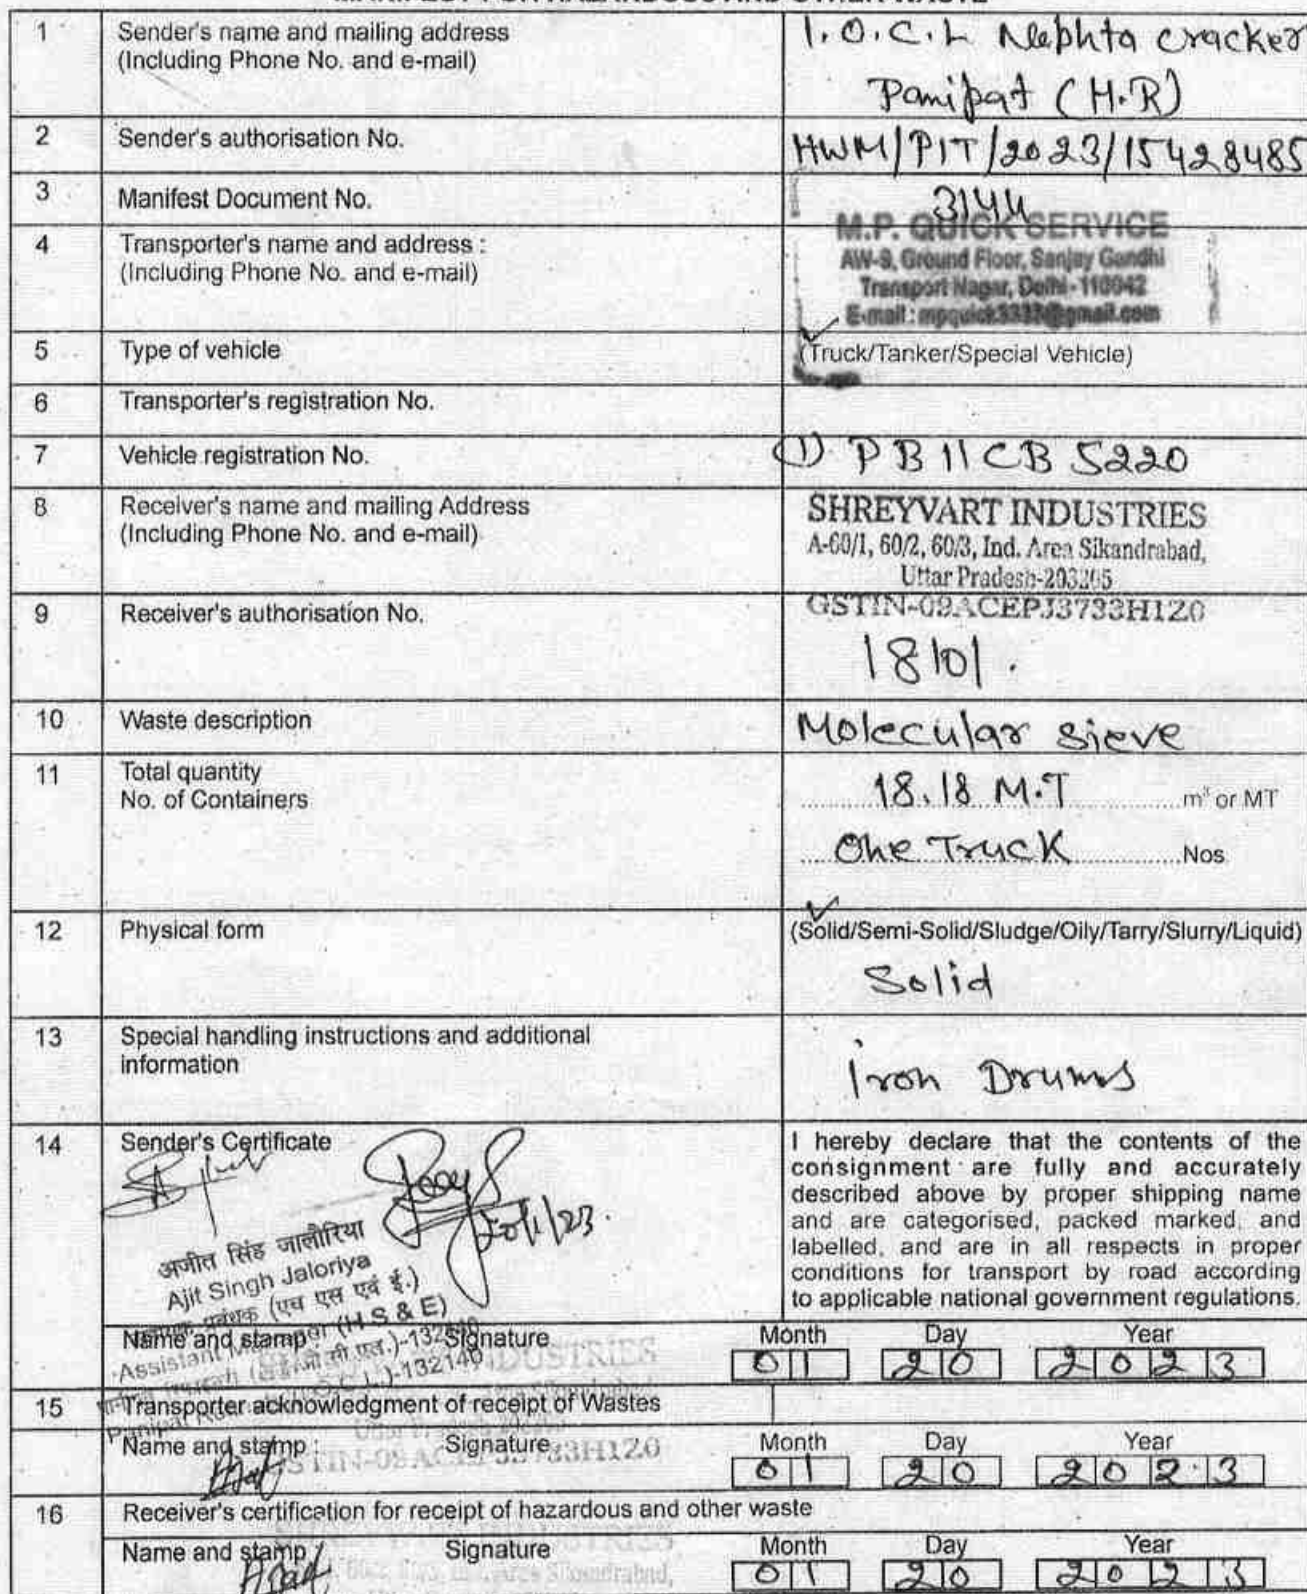 1 Sender's name and mailing address
(Including Phone No. and e-mail)
I.O.C.L Nephta cracker
Panipat (H.R)
2 Sender's authorisation No.
HWM/PIT/2023/15428485
3 Manifest Document No.
3144
4 Transporter's name and address :
(Including Phone No. and e-mail)
M.P. QUICK SERVICE
AW-9, Ground Floor, Sanjay Gandhi
Transport Nagar, Delhi-110042
E-mail : mpquick3333@gmail.com
5 Type of vehicle
(Truck/Tanker/Special Vehicle)
6 Transporter's registration No.
7 Vehicle registration No.
(1) PB11CB 5220
8 Receiver's name and mailing Address
(Including Phone No. and e-mail)
SHREYVART INDUSTRIES
A-60/1, 60/2, 60/3, Ind. Area Sikandrabad,
Uttar Pradesh-203205
GSTIN-09ACEPJ3733H1Z0
9 Receiver's authorisation No.
18101.
10 Waste description
Molecular sieve
11 Total quantity
No. of Containers
18.18 M.T m³ or MT
One Truck Nos
12 Physical form
(Solid/Semi-Solid/Sludge/Oily/Tarry/Slurry/Liquid)
Solid
13 Special handling instructions and additional
information
Iron Drums
14 Sender's Certificate
20/1/23.
अजीत सिंह जालौरिया
Ajit Singh Jaloriya
प्रबंधक (एच एस एवं ई.)
Assistant Manager (H S & E)
I hereby declare that the contents of the
consignment are fully and accurately
described above by proper shipping name
and are categorised, packed marked, and
labelled, and are in all respects in proper
conditions for transport by road according
to applicable national government regulations.
Name and stamp Signature Month Day Year
01 20 2023
15 Transporter acknowledgment of receipt of Wastes
Name and stamp : Signature Month Day Year
GSTIN-09ACEPJ3733H1Z0
01 20 2023
16 Receiver's certification for receipt of hazardous and other waste
Name and stamp Signature Month Day Year
01 20 2023